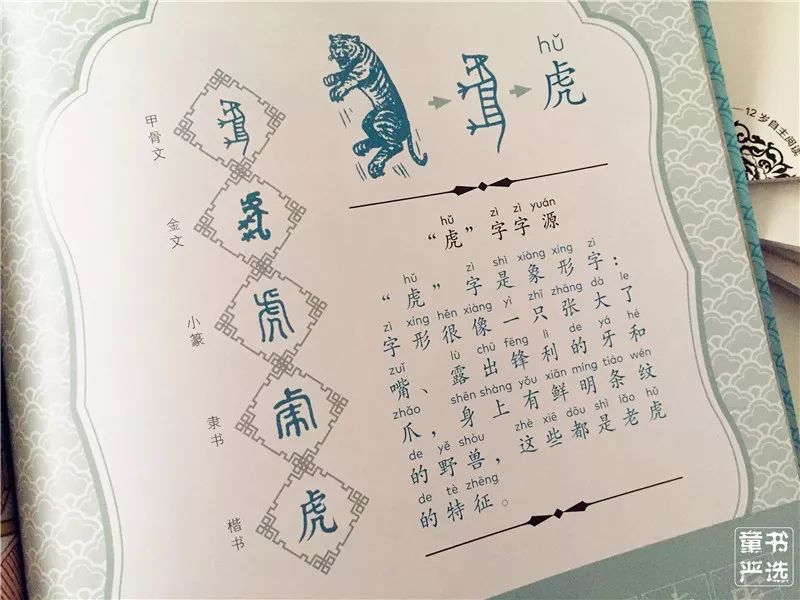 hǔ
虎
甲骨文
金文
小篆
隶书
楷书
hǔ zì zì yuán
“虎”字字源
hǔ zì shì xiàng xíng zì
“虎”字是象形字：
zì xíng hěn xiàng yì zhī zhāng dà le
字形很像一只张大了
zuǐ lù chū fēng lì de yá hé
嘴、露出锋利的牙和
zhǎo shēn shàng yǒu xiān míng tiáo wén
爪，身上有鲜明条纹
de yě shòu zhè xiē dōu shì lǎo hǔ
的野兽，这些都是老虎
de tè zhēng
的特征。
虎
12岁自主阅读
童书
严选